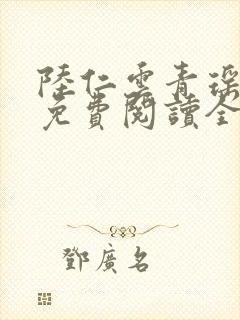 陸仁雲青瑤
免費閱讀全
鄧廣名